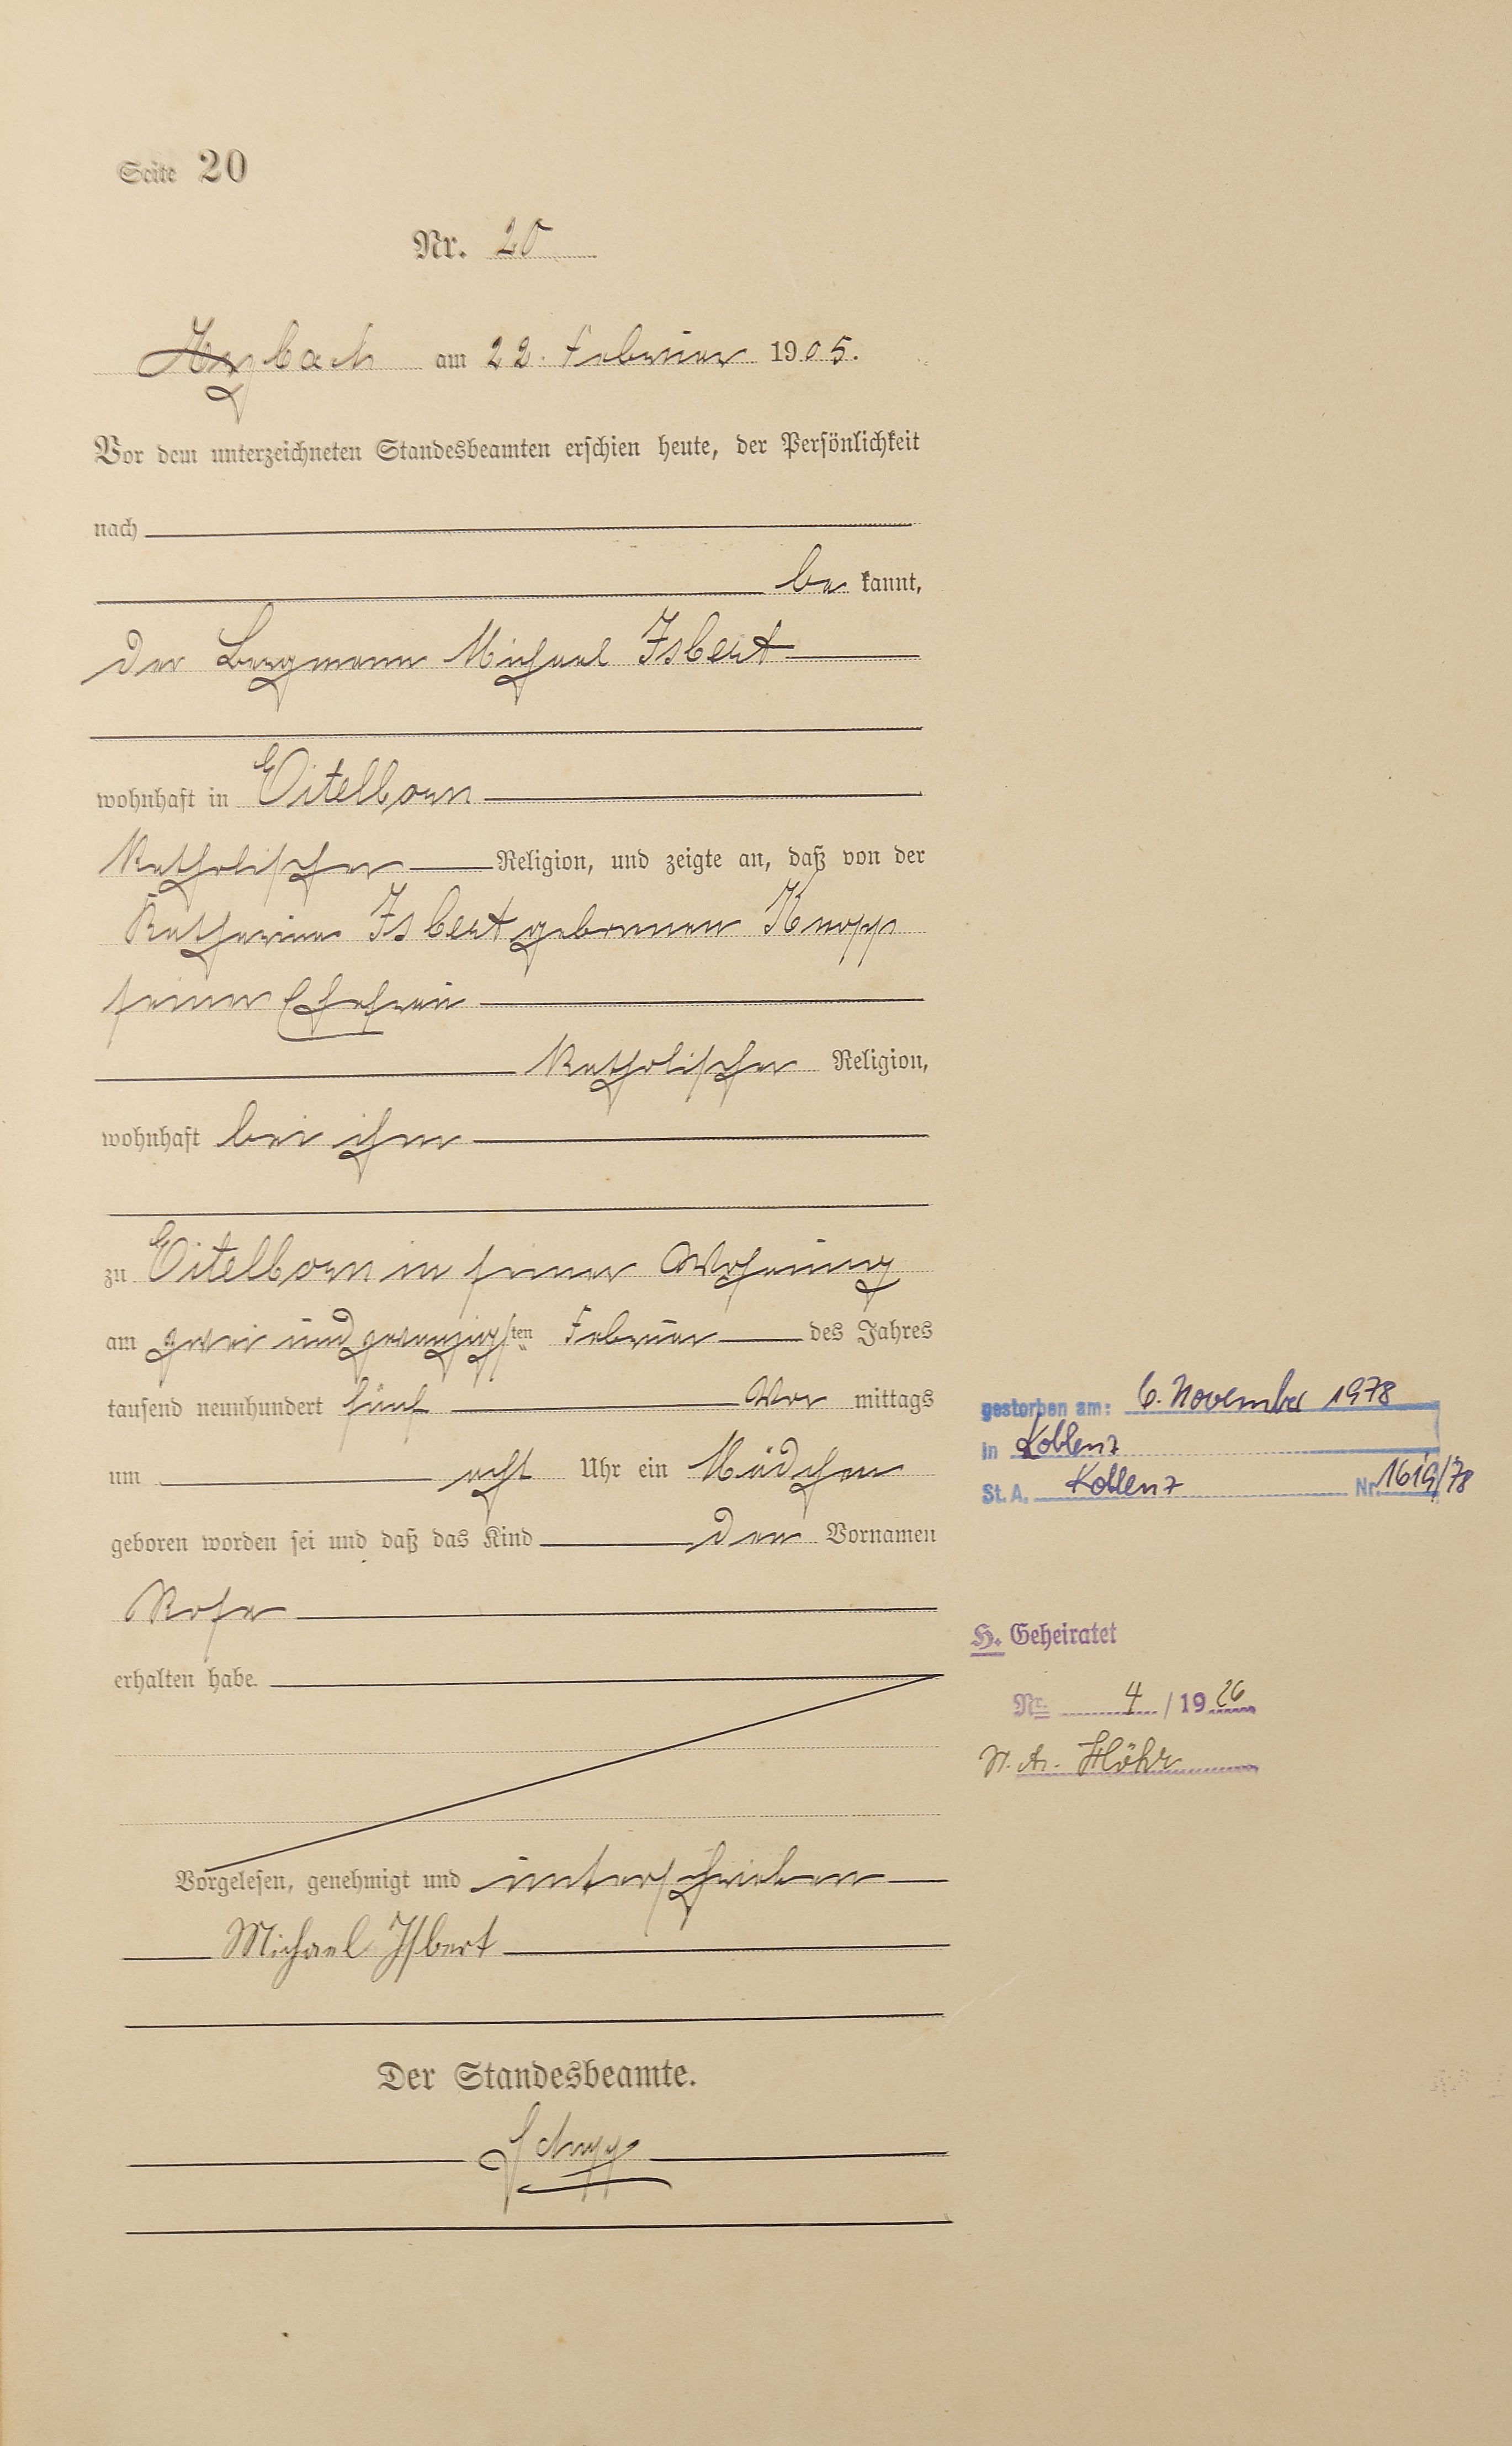 Seite 20
Nr. 20
Arzbach am 22. Februar 1905.
Vor dem unterzeichneten Standesbeamten erschien heute, der Persönlichkeit
nach
be kannt,
der Bergmann Michael Isbert
wohnhaft in Eitelborn
katholischer Religion, und zeigte an, daß von der
Katharina Isbert geborenen Knopp
seiner Ehefrau
katholischer Religion,
wohnhaft bei ihm
zu Eitelborn in seiner Wohnung
am zwei und zwanzigsten Februar des Jahres
tausend neunhundert fünf Vor mittags
um acht Uhr ein Mädchen
geboren worden sei und daß das Kind den Vornamen
Rosa
erhalten habe.
Vorgelesen, genehmigt und unterschrieben
Michael Isbert
Der Standesbeamte.
Schupp
gestorben am: 6. November 1978
in Koblenz
St. A. Koblenz Nr. 1619/78
H. Geheiratet
Nr. 4 / 1926
St. A. Höhr